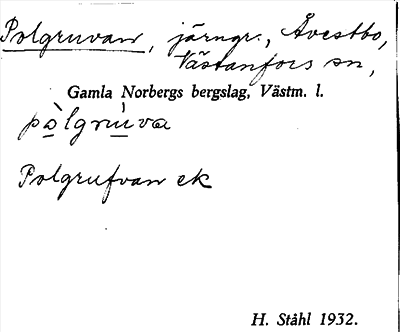 Polgruvan, järngr., Åvestbo,
Västanfors sn,
Gamla Norbergs bergslag, Västm. l.
pòlgrúva
Polgrufvan ek
H. Ståhl 1932.